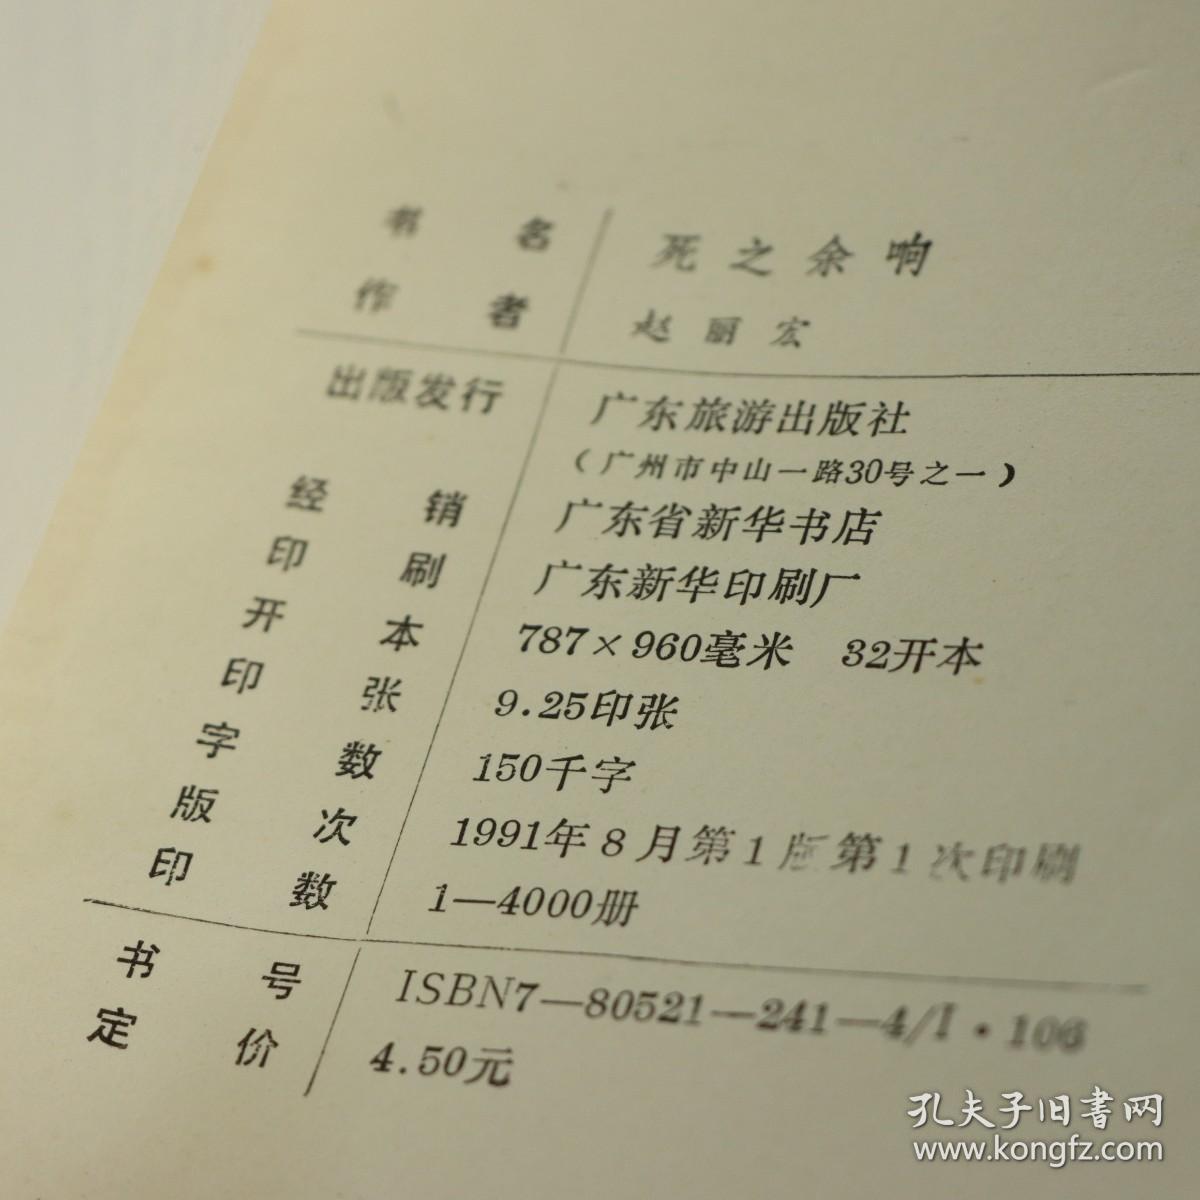 书 名 死之余响
作 者 赵丽宏
出版发行 广东旅游出版社
（广州市中山一路30号之一）
经 销 广东省新华书店
印 刷 广东新华印刷厂
开 本 787×960毫米 32开本
印 张 9.25印张
字 数 150千字
版 次 1991年8月第1版第1次印刷
印 数 1—4000册
书 号 ISBN7—80521—241—4/I·106
定 价 4.50元
孔夫子旧书网
www.kongfz.com